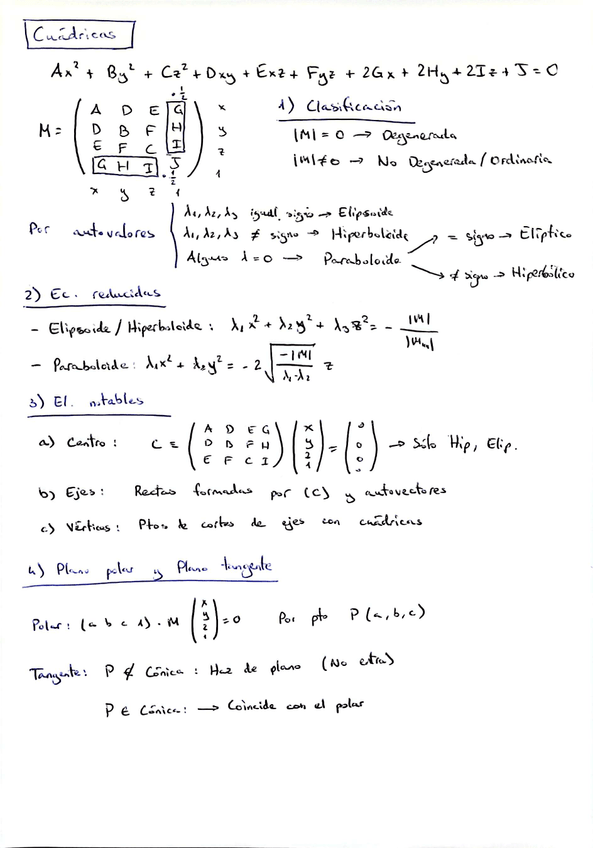 Cuádricas
Ax² + By² + Cz² + Dxy + Exz + Fyz + 2Gx + 2Hy + 2Iz + J = 0
· 1/2
M = ( A D E G ) x
( D B F H ) y
( E F C I ) z
( G H I J ) 1
· 1/2
x y z 1
1) Clasificación
|M| = 0 → Degenerada
|M| ≠ 0 → No Degenerada / Ordinaria
Por autovalores
λ1, λ2, λ3 igual signo → Elipsoide
λ1, λ2, λ3 ≠ signo → Hiperboloide
Alguno λ = 0 → Paraboloide
= signo → Elíptico
≠ signo → Hiperbólico
2) Ec. reducidas
- Elipsoide / Hiperboloide : λ1 x² + λ2 y² + λ3 z² = - |M| / |M∞|
- Paraboloide : λ1 x² + λ2 y² = -2 √( -|M| / λ1·λ2 ) z
3) El. notables
a) Centro : C ≡ ( A D E G / D B F H / E F C I ) ( x / y / z / 1 ) = ( 0 / 0 / 0 ) → Sólo Hip, Elip.
b) Ejes : Rectas formadas por (C) y autovectores
c) Vértices : Ptos de cortes de ejes con cuádricas
4) Plano polar y Plano tangente
Polar : (a b c 1) · M ( x / y / z / 1 ) = 0 Por pto P (a, b, c)
Tangente : P ∉ Cónica : Haz de plano (No entra)
P ∈ Cónica : → Coincide con el polar